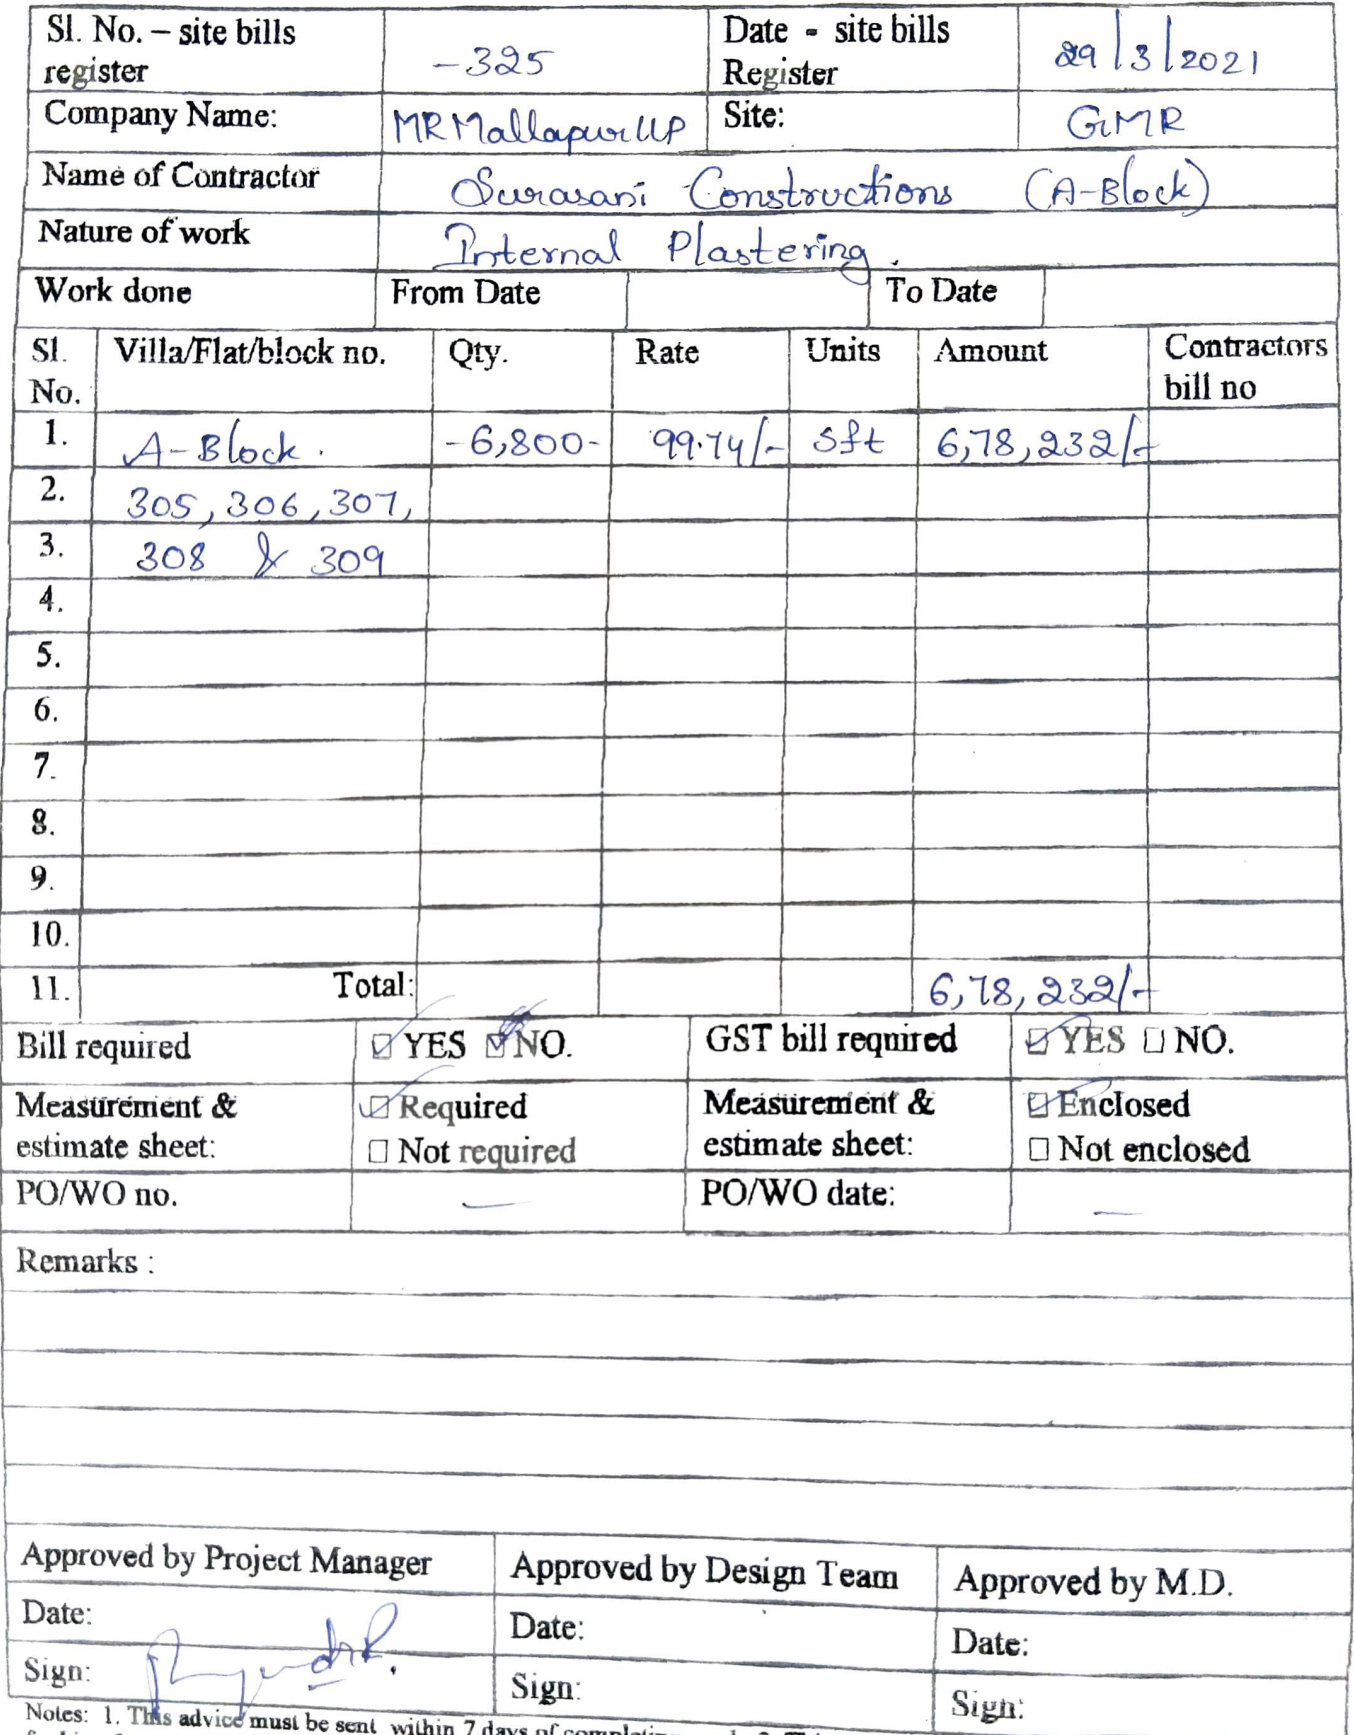 Sl. No. – site bills register -325 Date - site bills Register 29/3/2021
Company Name: MR Mallapur LLP Site: GMR
Name of Contractor Surasani Constructions (A-Block)
Nature of work Internal Plastering.
Work done From Date To Date
Sl. No. Villa/Flat/block no. Qty. Rate Units Amount Contractors bill no
1. A-Block. -6,800- 99.74/- Sft 6,78,232/-
2. 305, 306, 307,
3. 308 & 309
4.
5.
6.
7.
8.
9.
10.
11. Total: 6,78,232/-
Bill required ☑ YES ☑ NO. GST bill required ☑ YES ☐ NO.
Measurement & estimate sheet: ☑ Required ☐ Not required Measurement & estimate sheet: ☑ Enclosed ☐ Not enclosed
PO/WO no. — PO/WO date: —
Remarks :
Approved by Project Manager Approved by Design Team Approved by M.D.
Date: Date: Date:
Sign: Sign: Sign:
Notes: 1. This advice must be sent within 7 days of